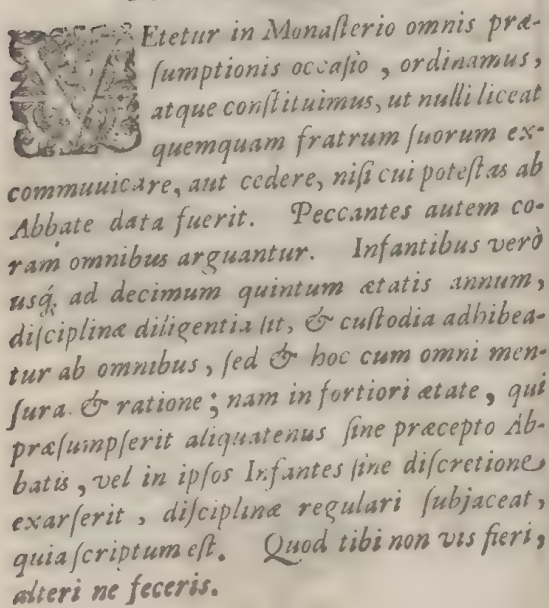 VEtetur in Monaſterio omnis præ-
ſumptionis occaſio, ordinamus,
atque conſtituimus, ut nulli liceat
quemquam fratrum ſuorum ex-
commuuicare, aut cedere, niſi cui poteſtas ab
Abbate data fuerit. Peccantes autem co-
ram omnibus arguantur. Infantibus verò
usq́; ad decimum quintum ætatis annum,
diſciplinæ diligentia ſit, & cuſtodia adhibea-
tur ab omnibus, ſed & hoc cum omni men-
ſura & ratione; nam in fortiori ætate, qui
præſumpſerit aliquatenus ſine præcepto Ab-
batis, vel in ipſos Infantes ſine diſcretione
exarſerit, diſciplinæ regulari ſubjaceat,
quia ſcriptum eſt. Quod tibi non vis fieri,
alteri ne feceris.